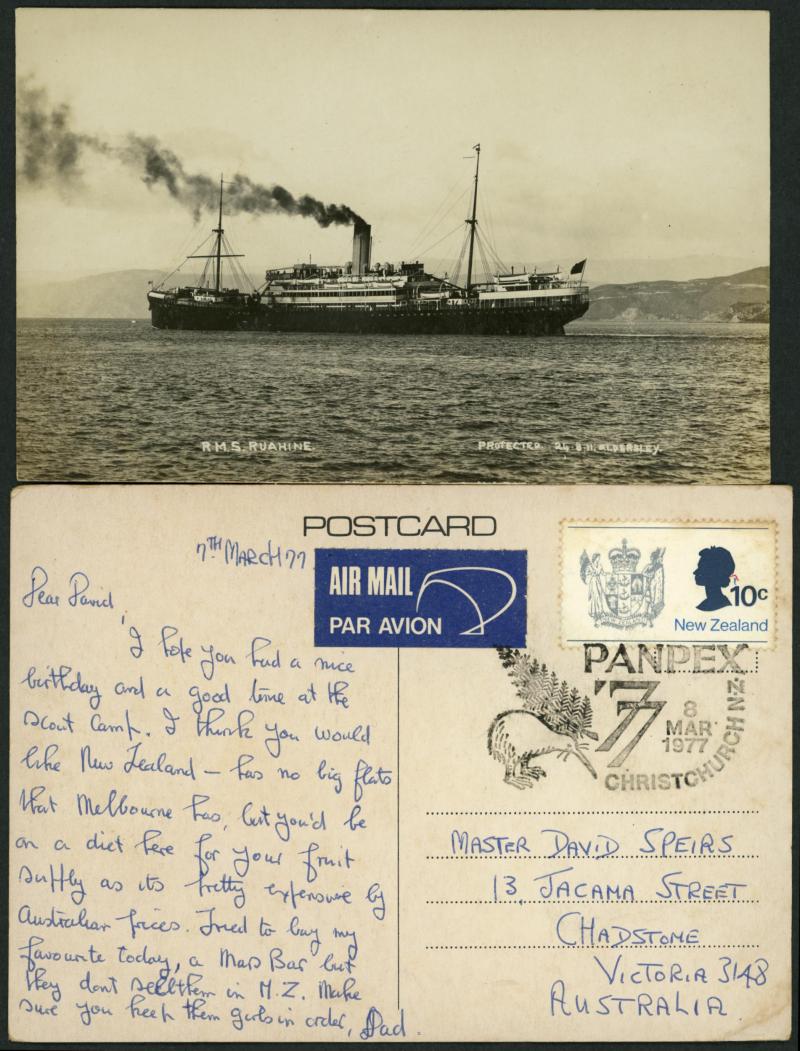 R.M.S. RUAHINE.
PROTECTED 24.8.11. ALDERSLEY.
POSTCARD
7TH MARCH 77
AIR MAIL
PAR AVION
NEW ZEALAND
10c
New Zealand
PANPEX
'77
8
MAR
1977
CHRISTCHURCH N.Z.
Dear David,
I hope you had a nice
birthday and a good time at the
scout camp. I think you would
like New Zealand – has no big flats
that Melbourne has, but you'd be
on a diet here for your fruit
supply as its pretty expensive by
Australian prices. Tried to buy my
favourite today, a Mars Bar but
they dont sell them in N.Z. Make
sure you keep them girls in order, Dad.
MASTER DAVID SPEIRS
13, JACAMA STREET
CHADSTONE
VICTORIA 3148
AUSTRALIA